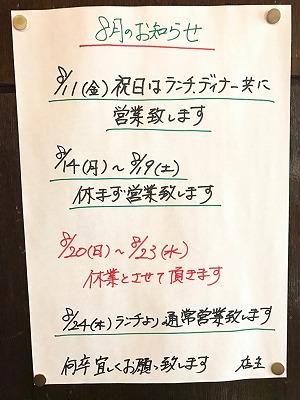 8月のお知らせ
8/11(金)祝日はランチ、ディナー共に
営業致します
8/14(月)〜8/19(土)
休まず営業致します
8/20(日)〜8/23(水)
休業とさせて頂きます
8/24(木)ランチより通常営業致します
何卒宜しくお願い致します 店主